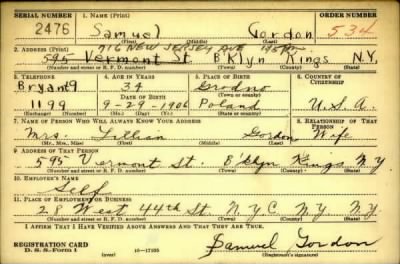 SERIAL NUMBER 1. NAME (Print) ORDER NUMBER
2476 Samuel Gordon 534
(First) (Middle) (Last)
716 NEW JERSEY AVE
2. ADDRESS (Print)
595 Vermont St. B'Klyn Kings N.Y.
(Number and street or R. F. D. number) (Town) (County) (State)
3. TELEPHONE 4. AGE IN YEARS 5. PLACE OF BIRTH 6. COUNTRY OF CITIZENSHIP
Bryant 9 34 Grodno
(Town or county)
DATE OF BIRTH
1199 9-29-1906 Poland U.S.A.
(Exchange) (Number) (Mo.) (Day) (Yr.) (State or country)
7. NAME OF PERSON WHO WILL ALWAYS KNOW YOUR ADDRESS 8. RELATIONSHIP OF THAT PERSON
Mrs. Lillian Gordon Wife
(Mr., Mrs., Miss) (First) (Middle) (Last)
9. ADDRESS OF THAT PERSON
595 Vermont St. B'klyn Kings N.Y.
(Number and street or R. F. D. number) (Town) (County) (State)
10. EMPLOYER'S NAME
Self
11. PLACE OF EMPLOYMENT OR BUSINESS
28 West 44th St. N.Y.C. N.Y. N.Y.
(Number and street or R. F. D. number) (Town) (County) (State)
I AFFIRM THAT I HAVE VERIFIED ABOVE ANSWERS AND THAT THEY ARE TRUE.
REGISTRATION CARD Samuel Gordon
D. S. S. Form 1 (over) 16—17105 (Registrant's signature)